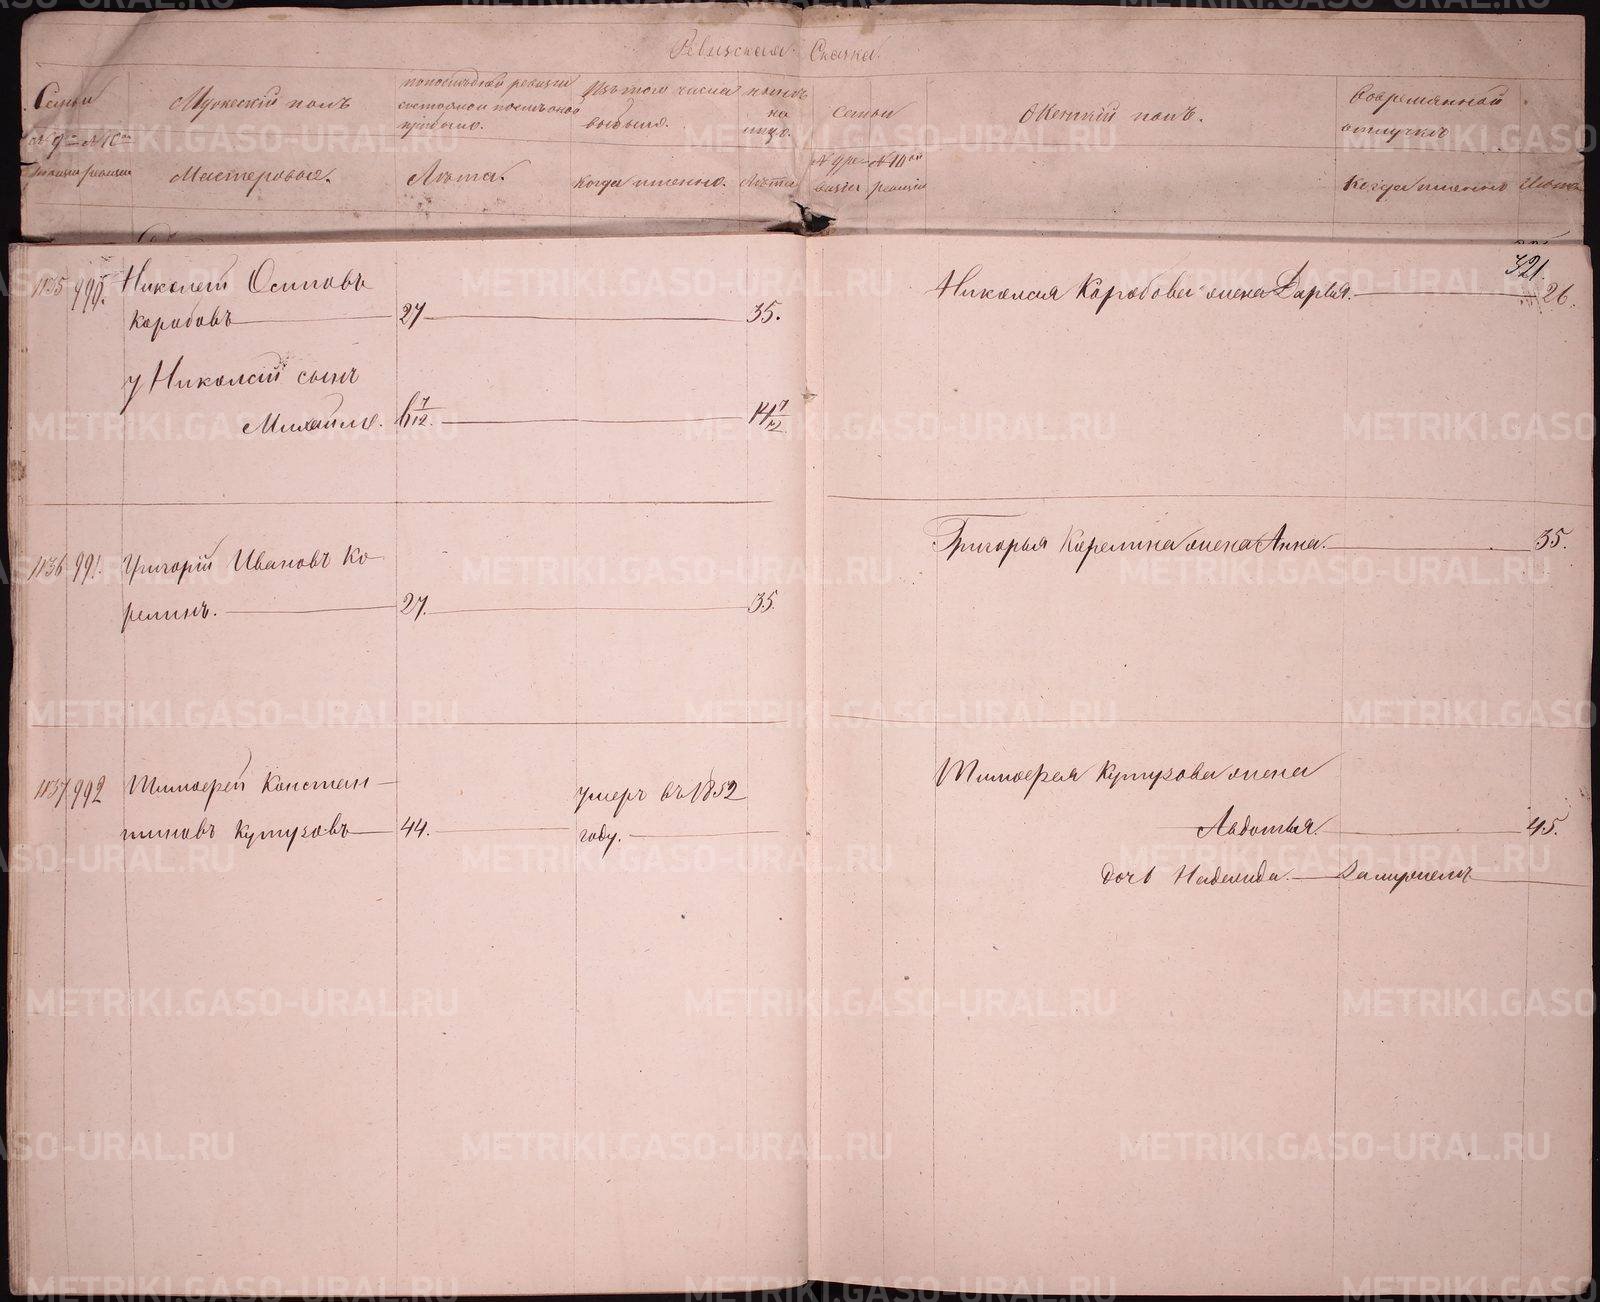 Ревизская Сказка.
Семьи
№ 9й № 10й
ревизии ревизии
Мужескій полъ
Мастеровые.
по последней ревизии
состояло и после оной
прибыло.
Лѣта.
Изъ того числа
выбыло.
Когда именно.
ныне
на
лицо.
Лѣта
Семьи
№ 9 ре- № 10ой
визіи ревизіи
Женскій полъ.
Во временной
отлучкѣ
Когда именно Лѣта
321.
1135 990. Николай Осиповъ
Коробовъ 27 35.
у Николая сынъ
Михайло. 6 7/12. 14 7/12
Николая Коробова жена Дарья. 26.
1136 991. Григорій Ивановъ Ко-
релинъ. 27. 35.
Григорья Корелина жена Анна. 35.
1137 992 Тимоѳей Констан-
тиновъ Кутузовъ 44. умеръ въ 1852
году.
Тимоѳея Кутузова жена
Авдотья. 45.
дочь Надежда. Замужемъ
METRIKI.GASO-URAL.RU